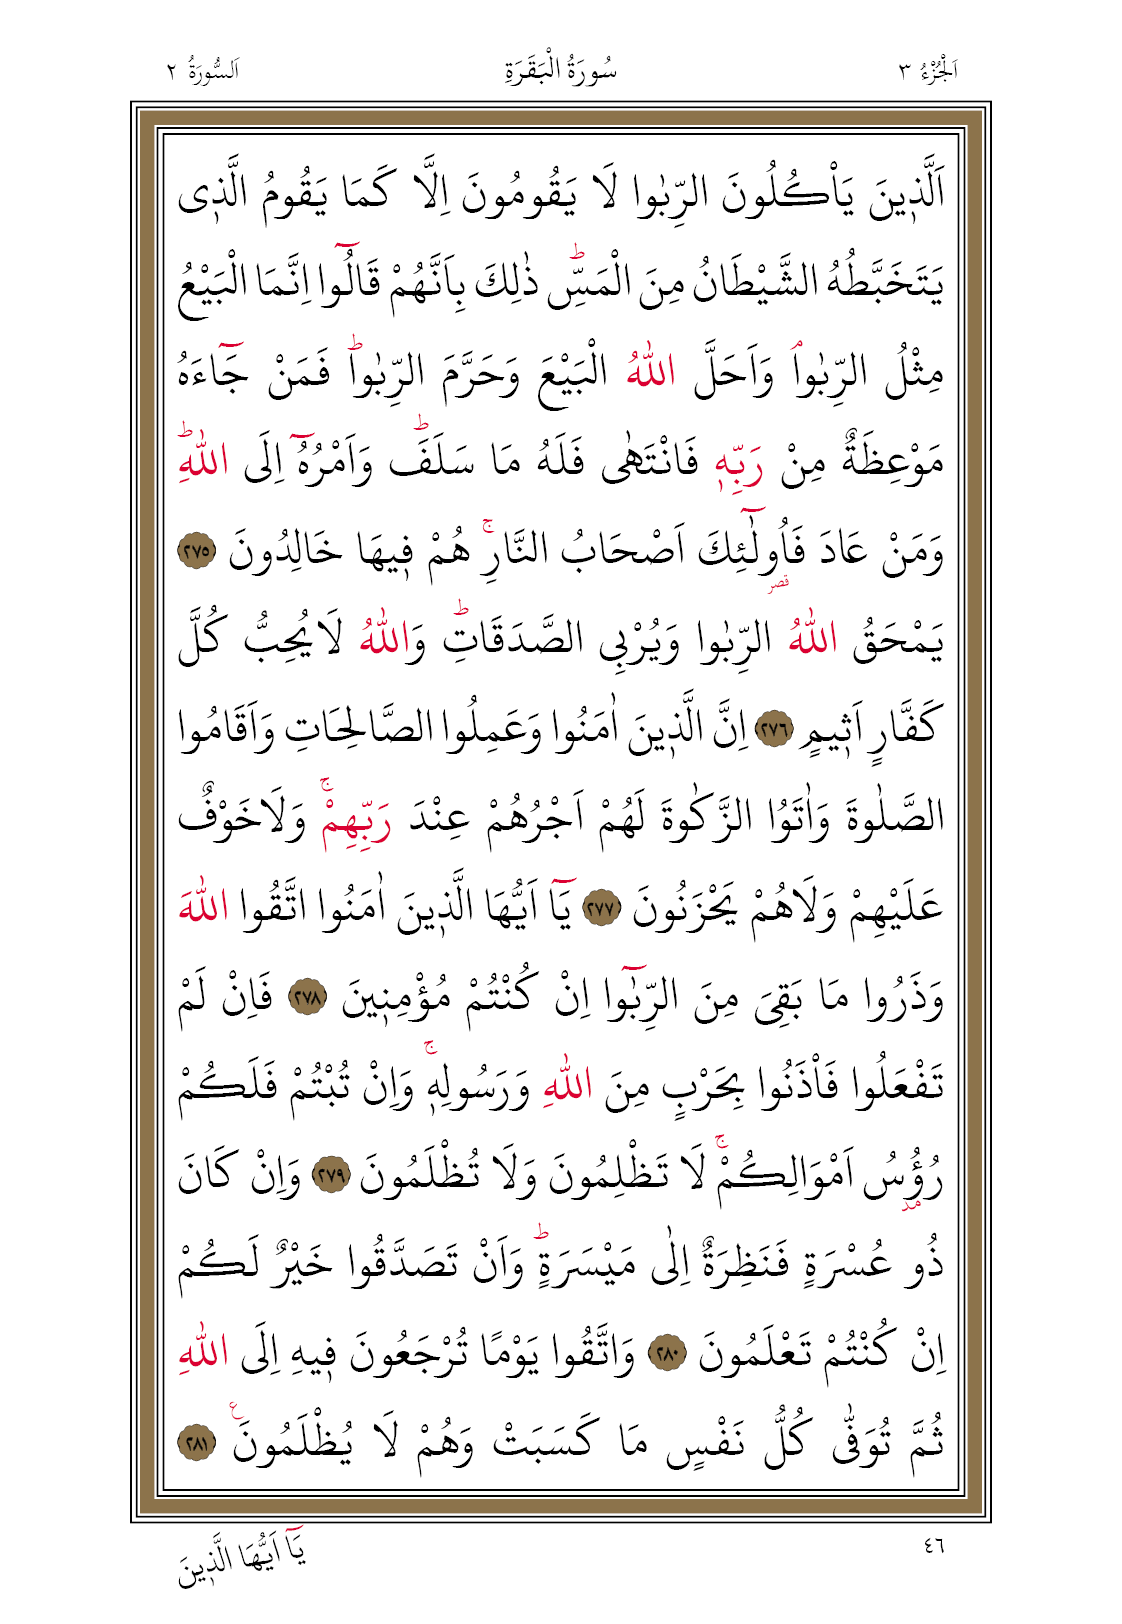 اَلْجُزْءُ ٣ سُورَةُ الْبَقَرَةِ اَلسُّورَةُ ٢
اَلَّذ۪ينَ يَأْكُلُونَ الرِّبٰوا لَا يَقُومُونَ اِلَّا كَمَا يَقُومُ الَّذ۪ى
يَتَخَبَّطُهُ الشَّيْطَانُ مِنَ الْمَسِّۜ ذٰلِكَ بِاَنَّهُمْ قَالُٓوا اِنَّمَا الْبَيْعُ
مِثْلُ الرِّبٰواۢ وَاَحَلَّ اللّٰهُ الْبَيْعَ وَحَرَّمَ الرِّبٰواۜ فَمَنْ جَٓاءَهُ
مَوْعِظَةٌ مِنْ رَبِّه۪ فَانْتَهٰى فَلَهُ مَا سَلَفَۜ وَاَمْرُهُٓ اِلَى اللّٰهِۜ
وَمَنْ عَادَ فَاُو۬لٰٓئِكَ اَصْحَابُ النَّارِۚ هُمْ ف۪يهَا خَالِدُونَ ﴿٢٧٥﴾
يَمْحَقُ اللّٰهُ الرِّبٰوا وَيُرْبِى الصَّدَقَاتِۜ وَاللّٰهُ لَا يُحِبُّ كُلَّ
كَفَّارٍ اَث۪يمٍ ﴿٢٧٦﴾ اِنَّ الَّذ۪ينَ اٰمَنُوا وَعَمِلُوا الصَّالِحَاتِ وَاَقَامُوا
الصَّلٰوةَ وَاٰتَوُا الزَّكٰوةَ لَهُمْ اَجْرُهُمْ عِنْدَ رَبِّهِمْۚ وَلَا خَوْفٌ
عَلَيْهِمْ وَلَا هُمْ يَحْزَنُونَ ﴿٢٧٧﴾ يَٓا اَيُّهَا الَّذ۪ينَ اٰمَنُوا اتَّقُوا اللّٰهَ
وَذَرُوا مَا بَقِىَ مِنَ الرِّبٰٓوا اِنْ كُنْتُمْ مُؤْمِن۪ينَ ﴿٢٧٨﴾ فَاِنْ لَمْ
تَفْعَلُوا فَأْذَنُوا بِحَرْبٍ مِنَ اللّٰهِ وَرَسُولِه۪ۚ وَاِنْ تُبْتُمْ فَلَكُمْ
رُؤُ۫سُ اَمْوَالِكُمْۚ لَا تَظْلِمُونَ وَلَا تُظْلَمُونَ ﴿٢٧٩﴾ وَاِنْ كَانَ
ذُو عُسْرَةٍ فَنَظِرَةٌ اِلٰى مَيْسَرَةٍۜ وَاَنْ تَصَدَّقُوا خَيْرٌ لَكُمْ
اِنْ كُنْتُمْ تَعْلَمُونَ ﴿٢٨٠﴾ وَاتَّقُوا يَوْمًا تُرْجَعُونَ ف۪يهِ اِلَى اللّٰهِ
ثُمَّ تُوَفّٰى كُلُّ نَفْسٍ مَا كَسَبَتْ وَهُمْ لَا يُظْلَمُونَ۟ ﴿٢٨١﴾
٤٦ يَٓا اَيُّهَا الَّذ۪ينَ